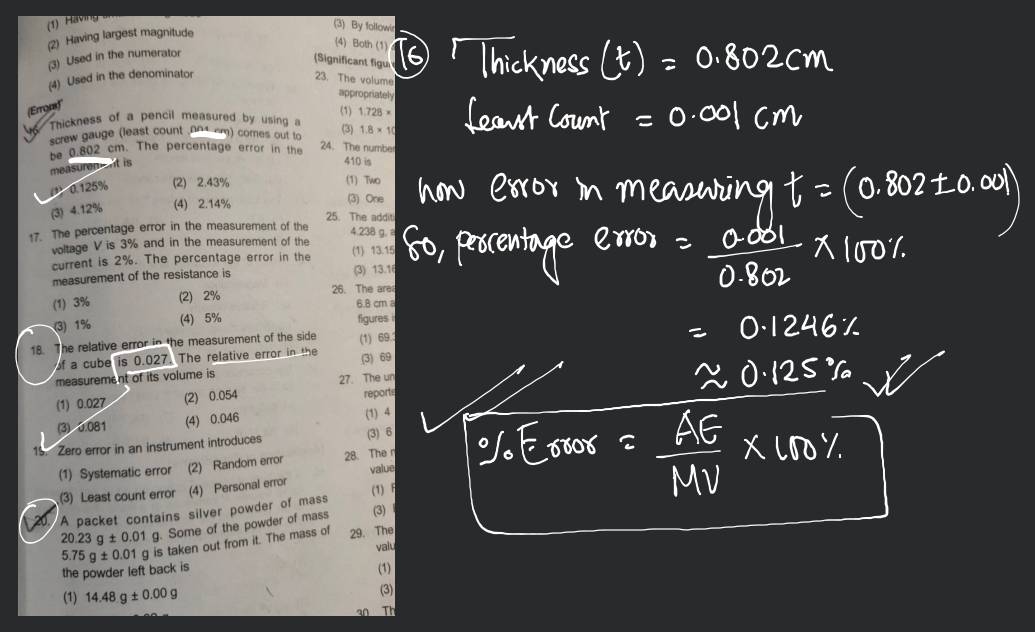 (1) Having
(2) Having largest magnitude
(3) Used in the numerator
(4) Used in the denominator
(Error)
Thickness of a pencil measured by using a
screw gauge (least count .001 cm) comes out to
be 0.802 cm. The percentage error in the
measurement is
(1) 0.125% (2) 2.43%
(3) 4.12% (4) 2.14%
17. The percentage error in the measurement of the
voltage V is 3% and in the measurement of the
current is 2%. The percentage error in the
measurement of the resistance is
(1) 3% (2) 2%
(3) 1% (4) 5%
18. The relative error in the measurement of the side
of a cube is 0.027. The relative error in the
measurement of its volume is
(1) 0.027 (2) 0.054
(3) 0.081 (4) 0.046
19. Zero error in an instrument introduces
(1) Systematic error (2) Random error
(3) Least count error (4) Personal error
20. A packet contains silver powder of mass
20.23 g ± 0.01 g. Some of the powder of mass
5.75 g ± 0.01 g is taken out from it. The mass of
the powder left back is
(1) 14.48 g ± 0.00 g
(3) By
(4) Both (1)
(Significant
23. The volume
appropriately
(1) 1.728 ×
(3) 1.8 × 10
24. The number
410 is
(1) Two
(3) One
25. The
4.238 g,
(1) 13.15
(3) 13.16
26. The
6.8 cm
figures
(1) 69.
(3) 69
27. The
(1) 4
(3) 6
28. The
value
(1)
(3)
29. The
(1)
(3)
30. Th
16 Thickness (t) = 0.802cm
Least Count = 0.001 cm
now error in measuring t = (0.802 ± 0.001)
So, percentage error = 0.001 / 0.802 × 100%
= 0.1246%
≈ 0.125%
% Error = AE / MV × 100%